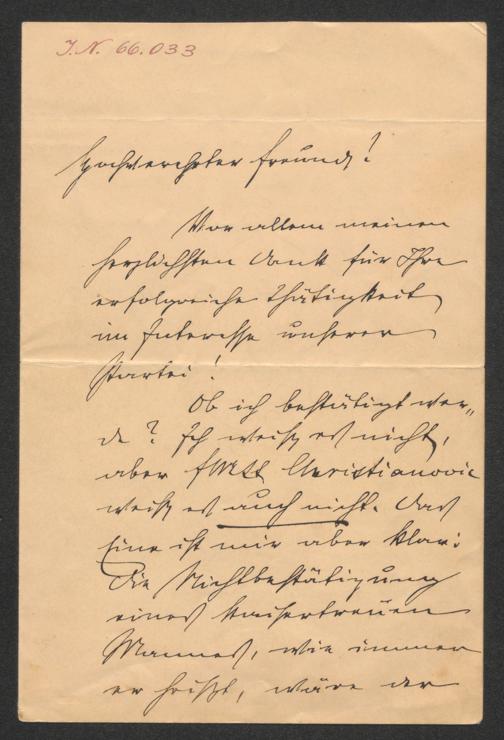 J.N. 66.033
Hochverehrter Freund!
Vor allem meinen
herzlichsten Dank für Ihre
erfolgreiche Thätigkeit
im Interesse unserer
Partei!
Ob ich bestätigt wer„
de? Ich weiß es nicht,
aber FMLt Christianovic
weiß es auch nicht. Das
Eine ist mir aber klar:
Die Nichtbestätigung
eines kaisertreuen
Mannes, wie immer
er heißt, wäre der